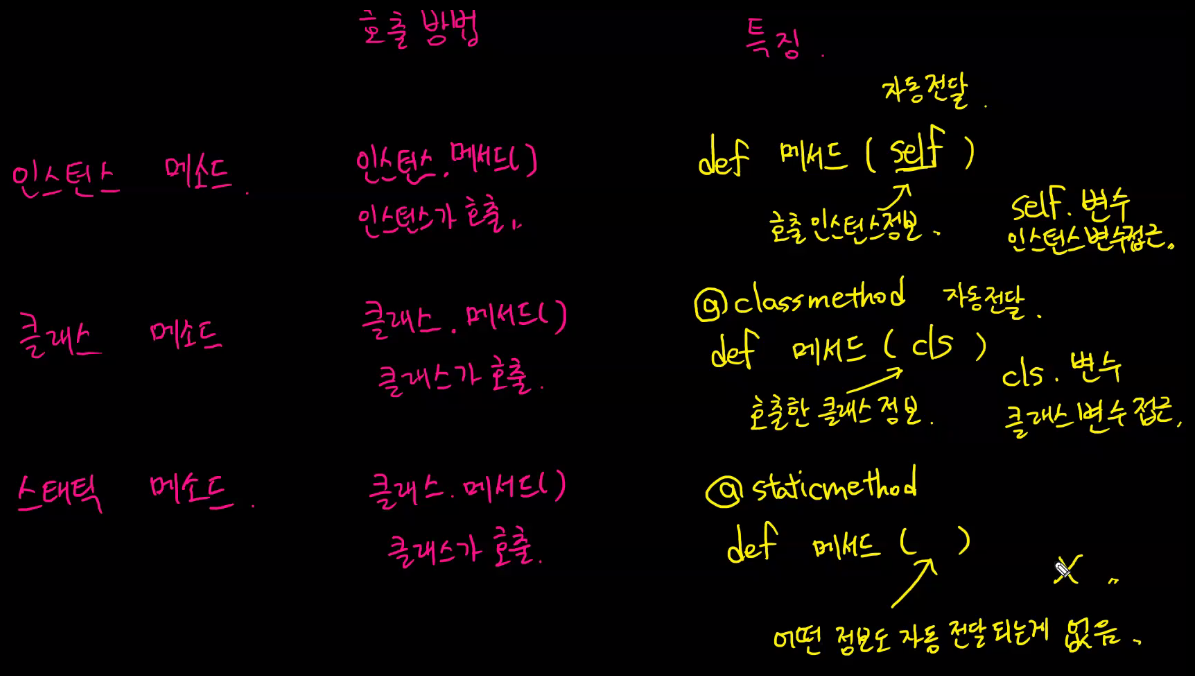 호출 방법
특징.
자동전달.
인스턴스 메소드.
인스턴스.메서드()
인스턴스가 호출.
def 메서드 ( self )
호출인스턴스정보.
self. 변수
인스턴스변수접근.
클래스 메소드
클래스. 메서드()
클래스가 호출.
@classmethod 자동전달.
def 메서드 ( cls )
호출한 클래스 정보.
cls. 변수
클래스 변수 접근.
스태틱 메소드.
클래스.메서드()
클래스가 호출.
@staticmethod
def 메서드 ( )
X ..
어떤 정보도 자동 전달 되는게 없음.